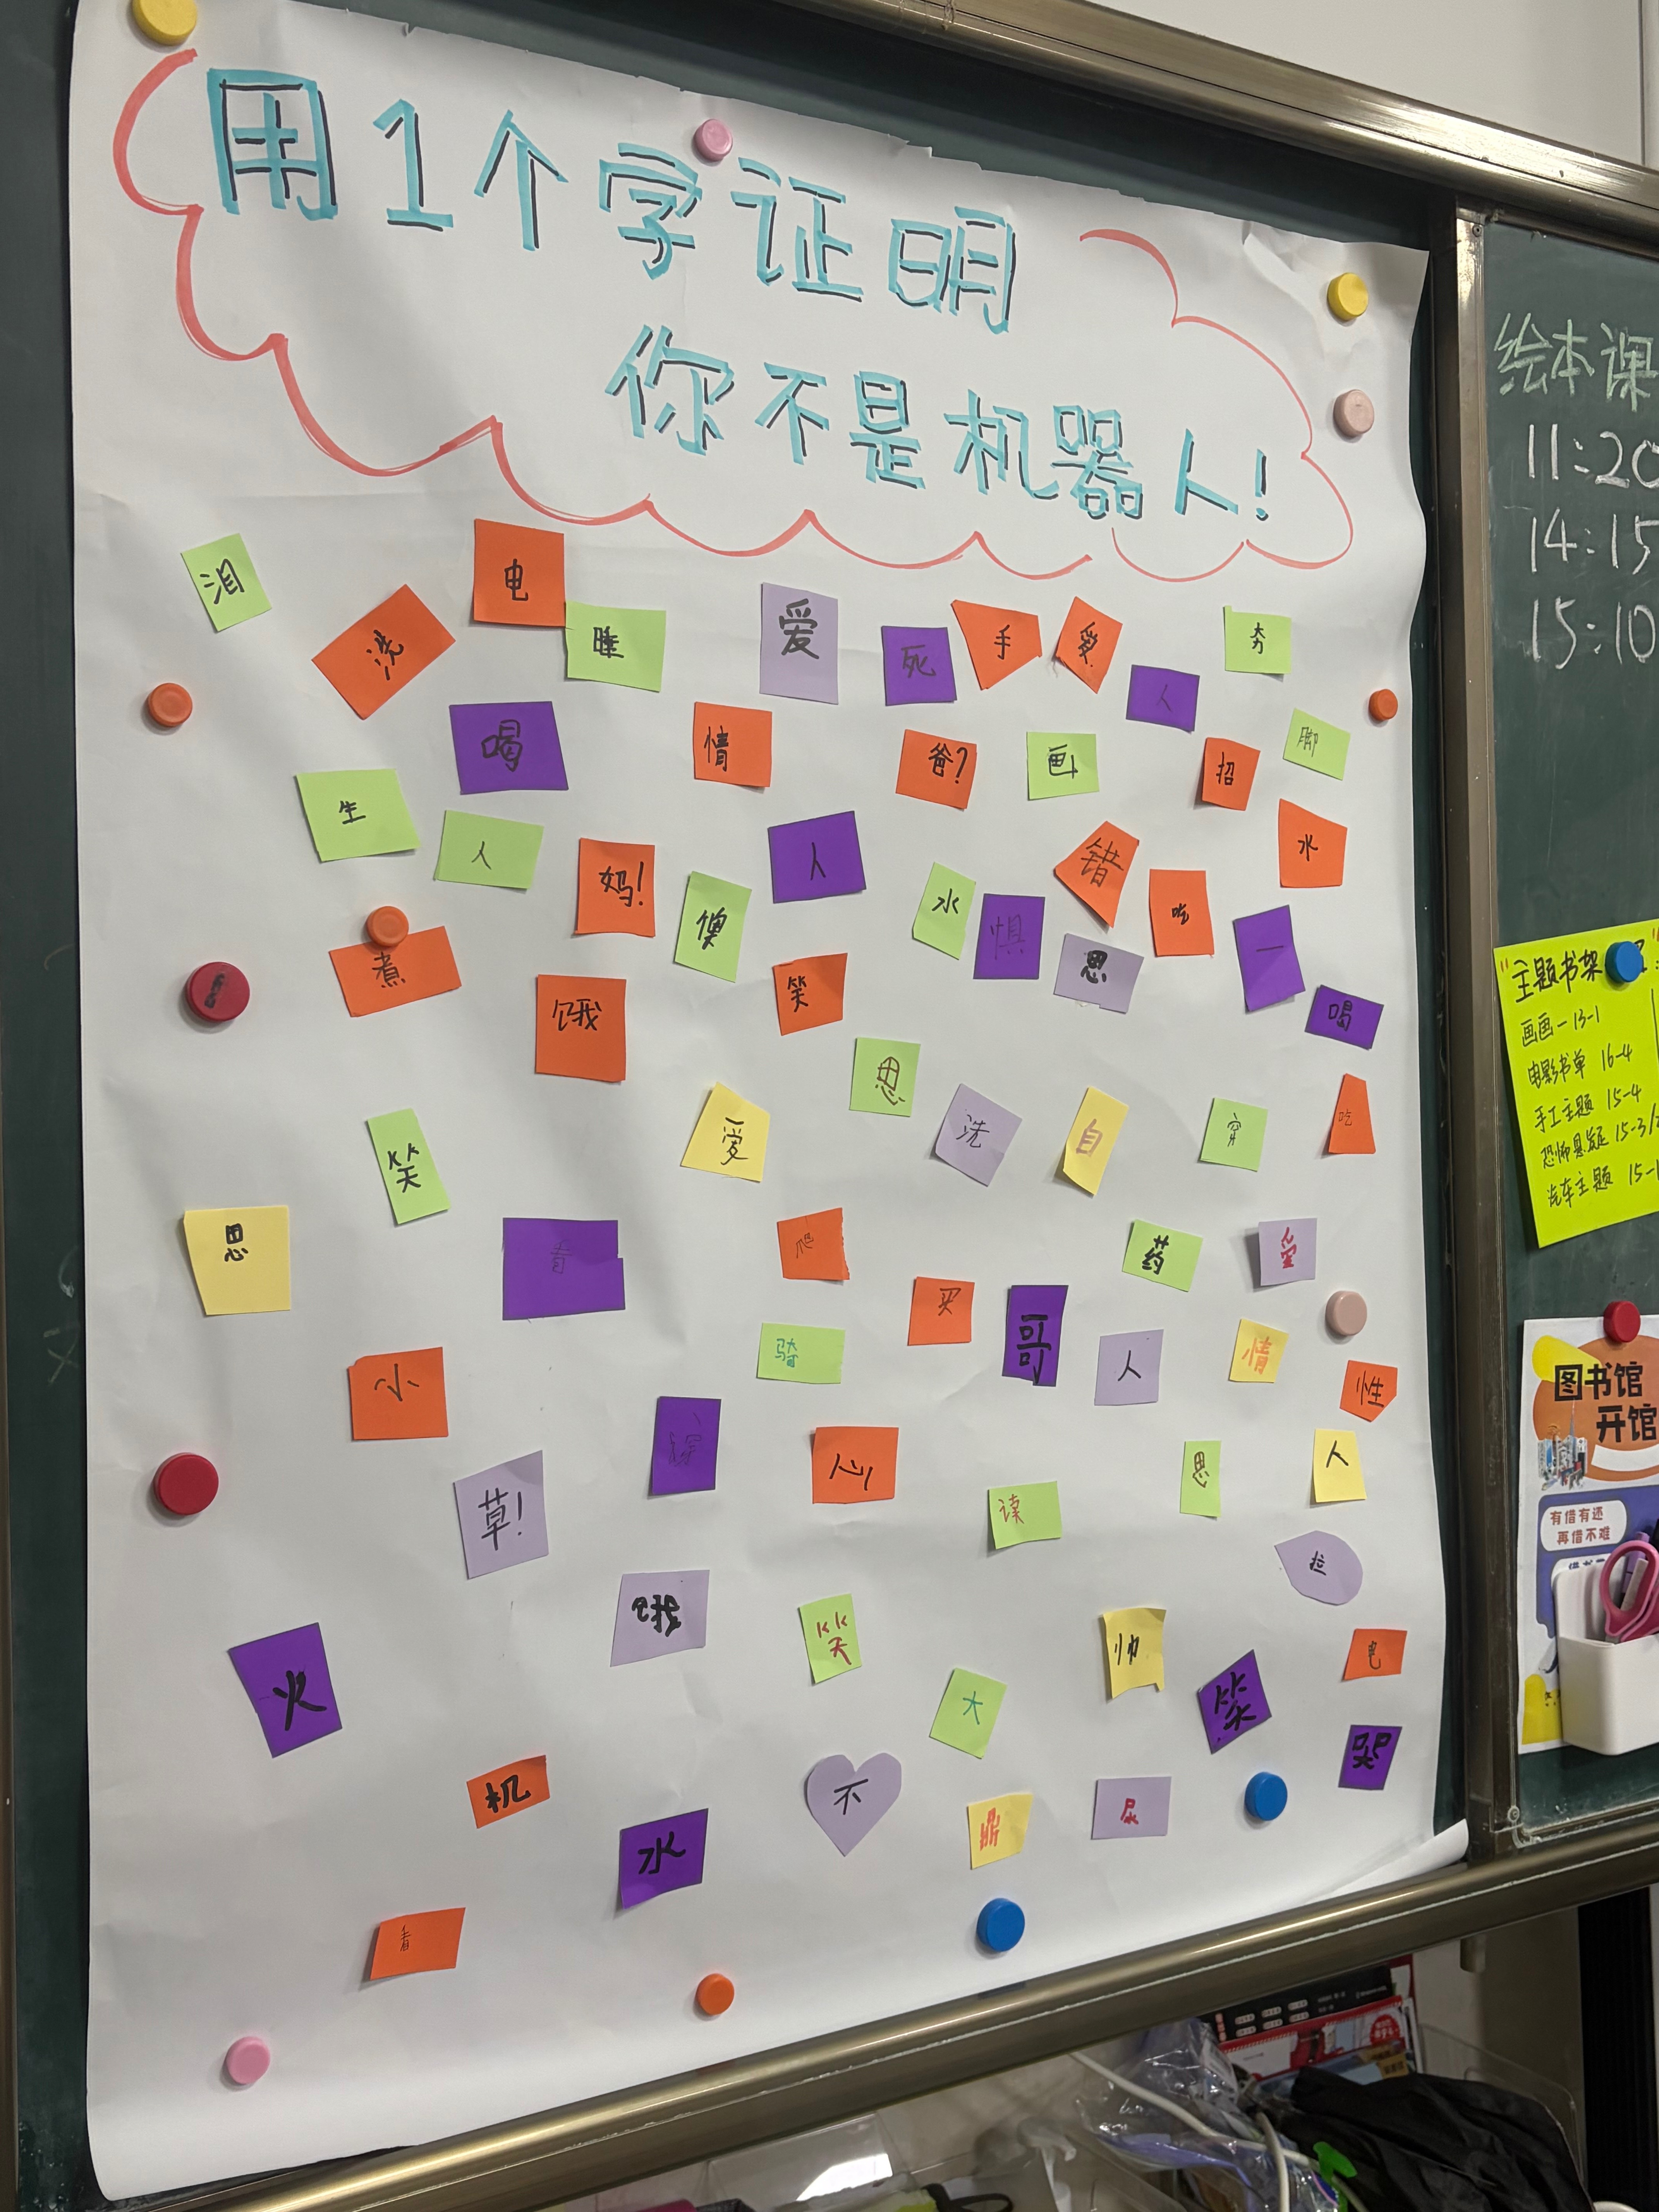 用1个字证明
你不是机器人！
泪
电
洗
睡
爱
死
手
爱
人
夯
喝
情
爸？
画
招
脚
生
人
妈！
人
错
水
便
水
惧
吃
一
煮
饿
笑
思
喝
思
笑
爱
洗
自
穿
吃
思
爬
药
爱
买
哥
骑
人
情
性
小
心
读
思
人
草！
饿
笑
帅
拉
电
火
大
笑
哭
机
水
不
鼎
尿
看
绘本课
11:20
14:15
15:10
主题书架
画画-13-1
电影书单 16-4
手工主题 15-4
恐怖悬疑 15-3/
汽车主题 15-1
图书馆
开馆
有借有还
再借不难